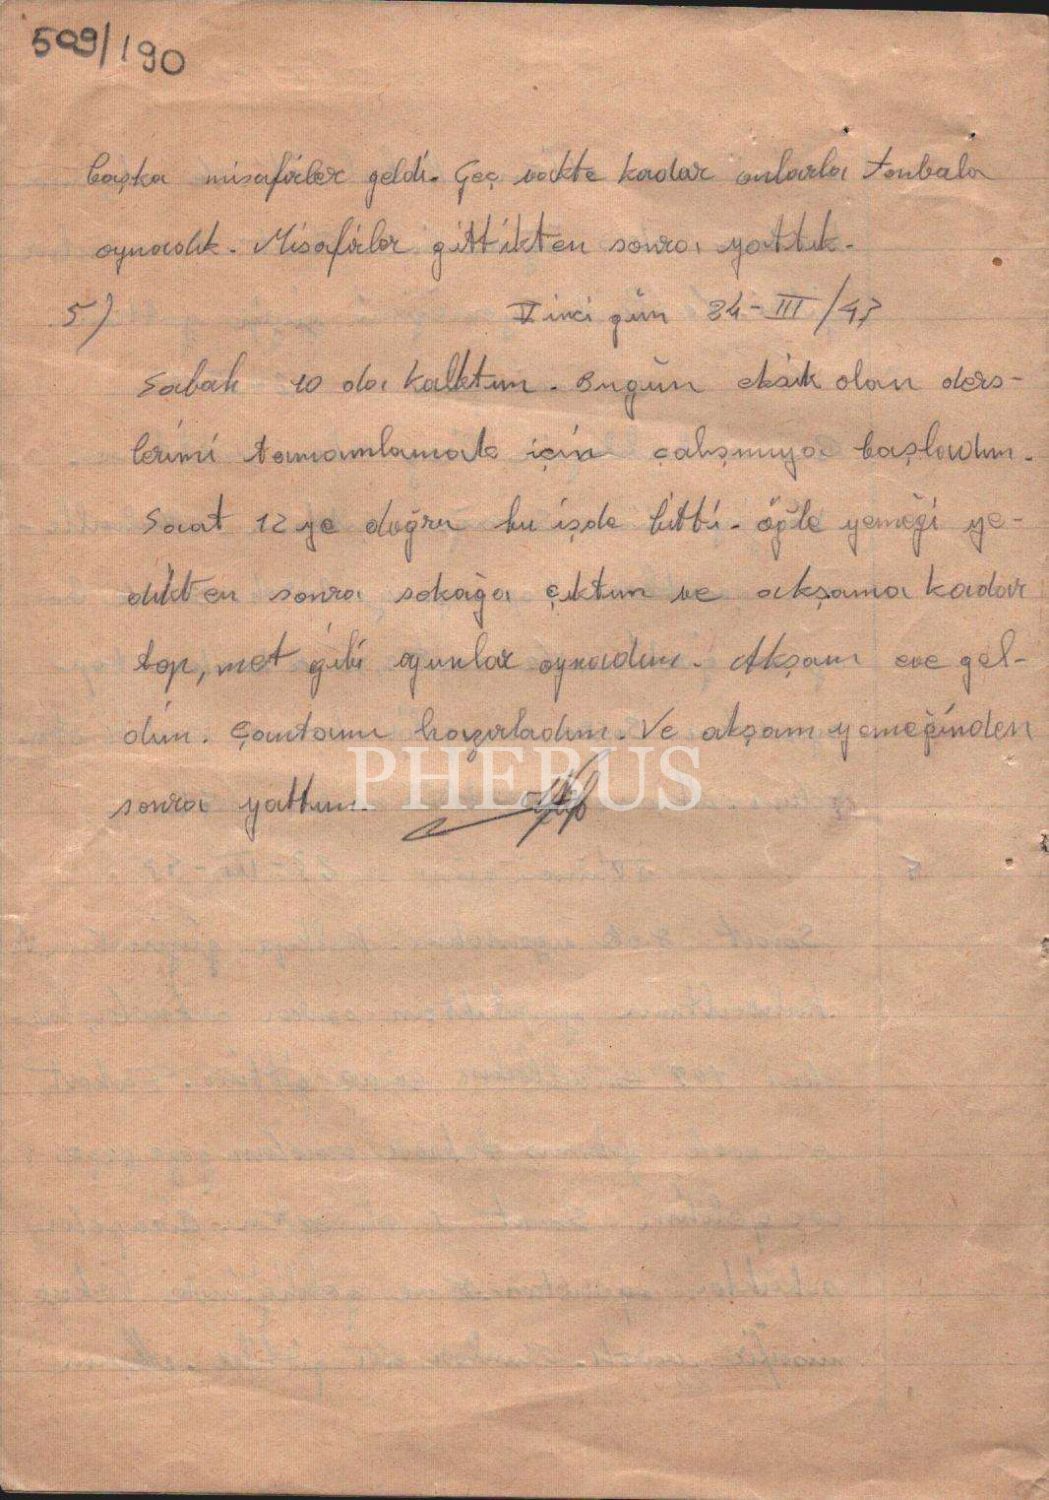 509/190
başka misafirler geldi. Geç vakte kadar onlarla tonbala
oynadık. Misafirler gittikten sonra yattık.
5) V inci gün 24-III/47
Sabah 10 da kalktım. Bugün eksik olan ders-
lerimi tamamlamak için çalışmıya başladım.
Saat 12 ye doğru bu işde bitti. Öğle yemeği ye-
dikten sonra sokağa çıktım ve akşama kadar
top, met gibi oyunlar oynadım. Akşam eve gel-
dim. Çantamı hazırladım. Ve akşam yemeğinden
sonra yattım.
PHEBUS